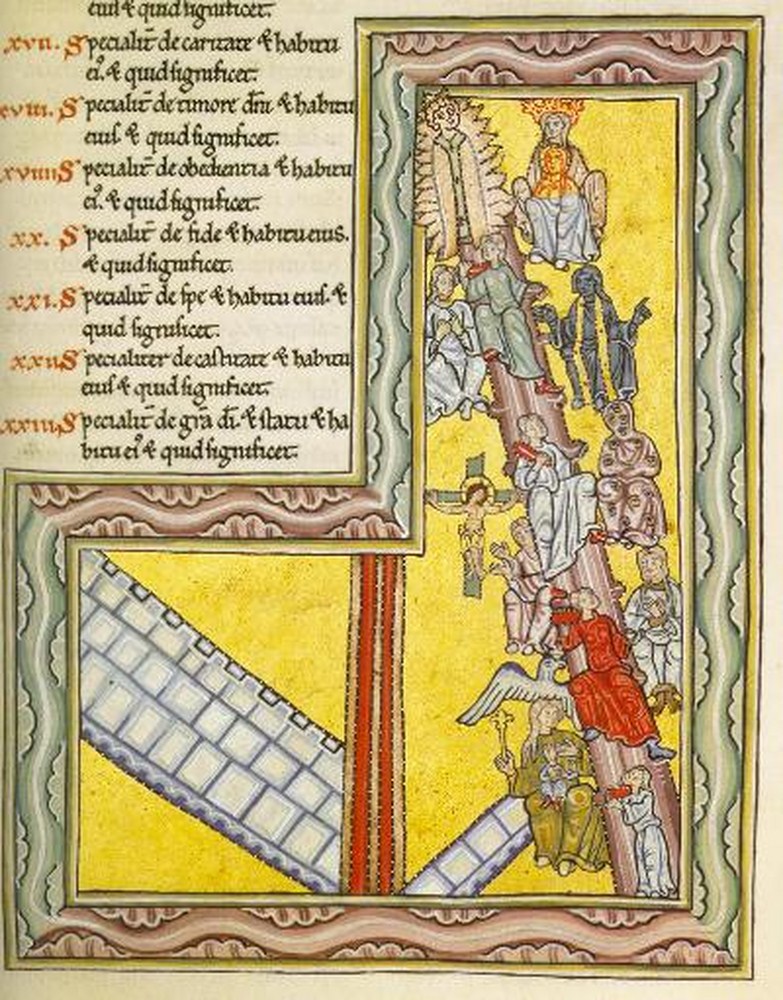 eius ⁊ quid significet.
xvii. Specialit̄ de caritate ⁊ habitu
ei⁹. ⁊ quid significet.
xviii. Specialit̄ de timore dñi ⁊ habitu
eius. ⁊ quid significet.
xviiii Specialit̄ de obedientia ⁊ habitu
ei⁹. ⁊ quid significet.
xx. Specialit̄ de fide ⁊ habitu eius.
⁊ quid significet.
xxi. Specialit̄ de spe ⁊ habitu eius. ⁊
quid significet.
xxii Specialiter de castitate ⁊ habitu
eius ⁊ quid significet.
xxiii Specialit̄ de gr̄a dī. ⁊ statu ⁊ ha
bitu ei⁹ ⁊ quid significet.